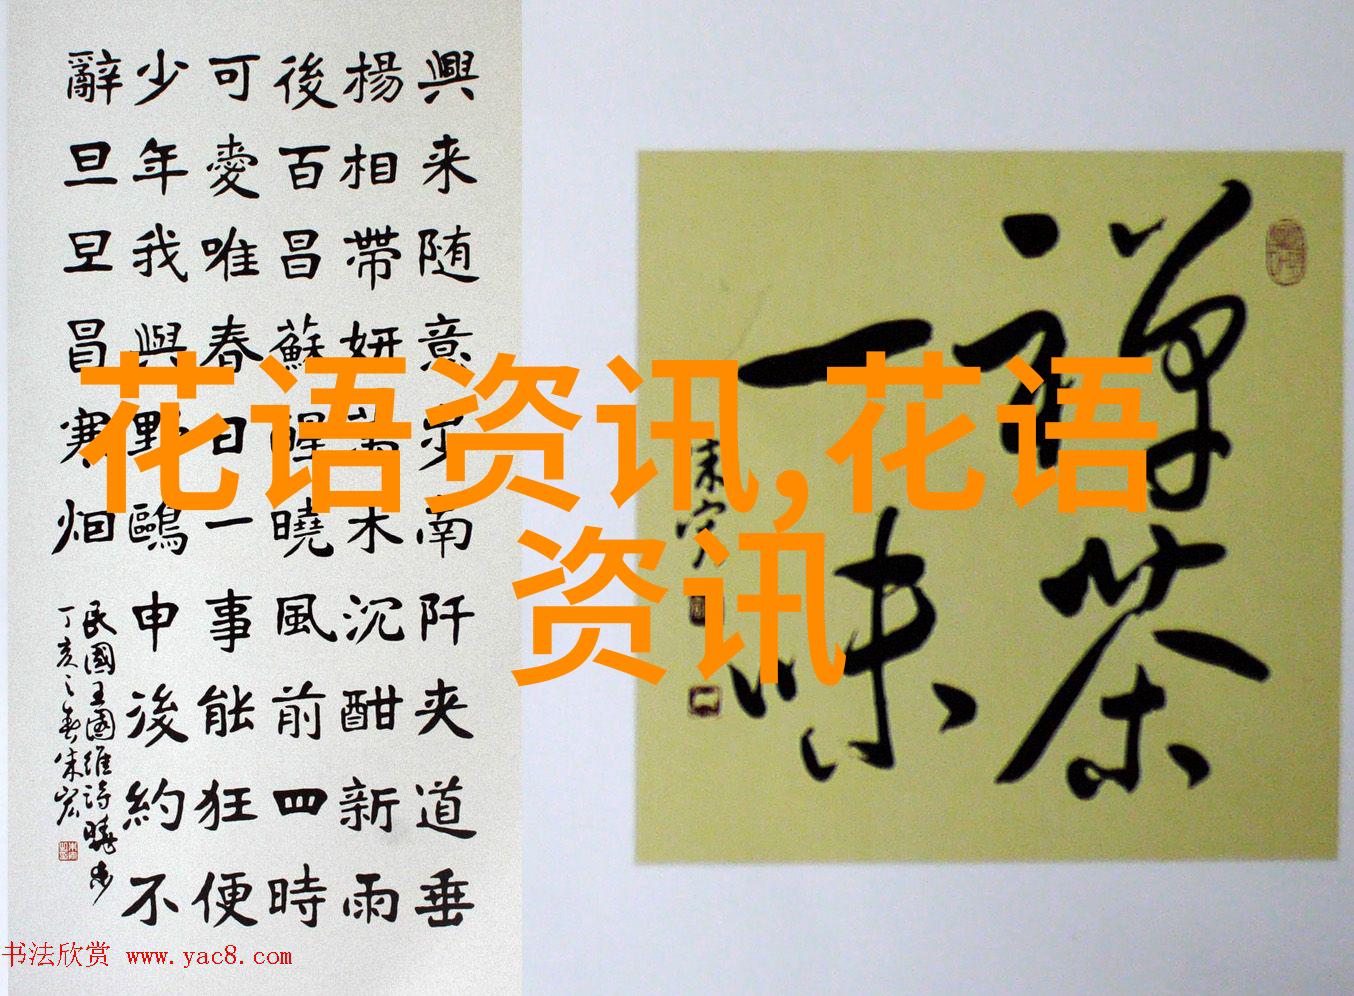 興来随意步南阡夹道垂
楊相帶妍萬木沉酣新雨
後百昌蘇醒曉風前四時
可愛唯春日一事能狂便
少年我與野鷗申後約不
辭旦旦冒寒烟
民國王國維詩曉步
丁亥之春朱宏
禪茶
一味
朱宏
花语资讯,花语
资讯
书法欣赏 www.yac8.com